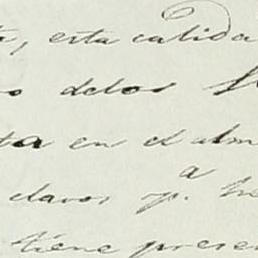 , esta calida
o delos
ta en el alm
clavos p.a
tiene presen